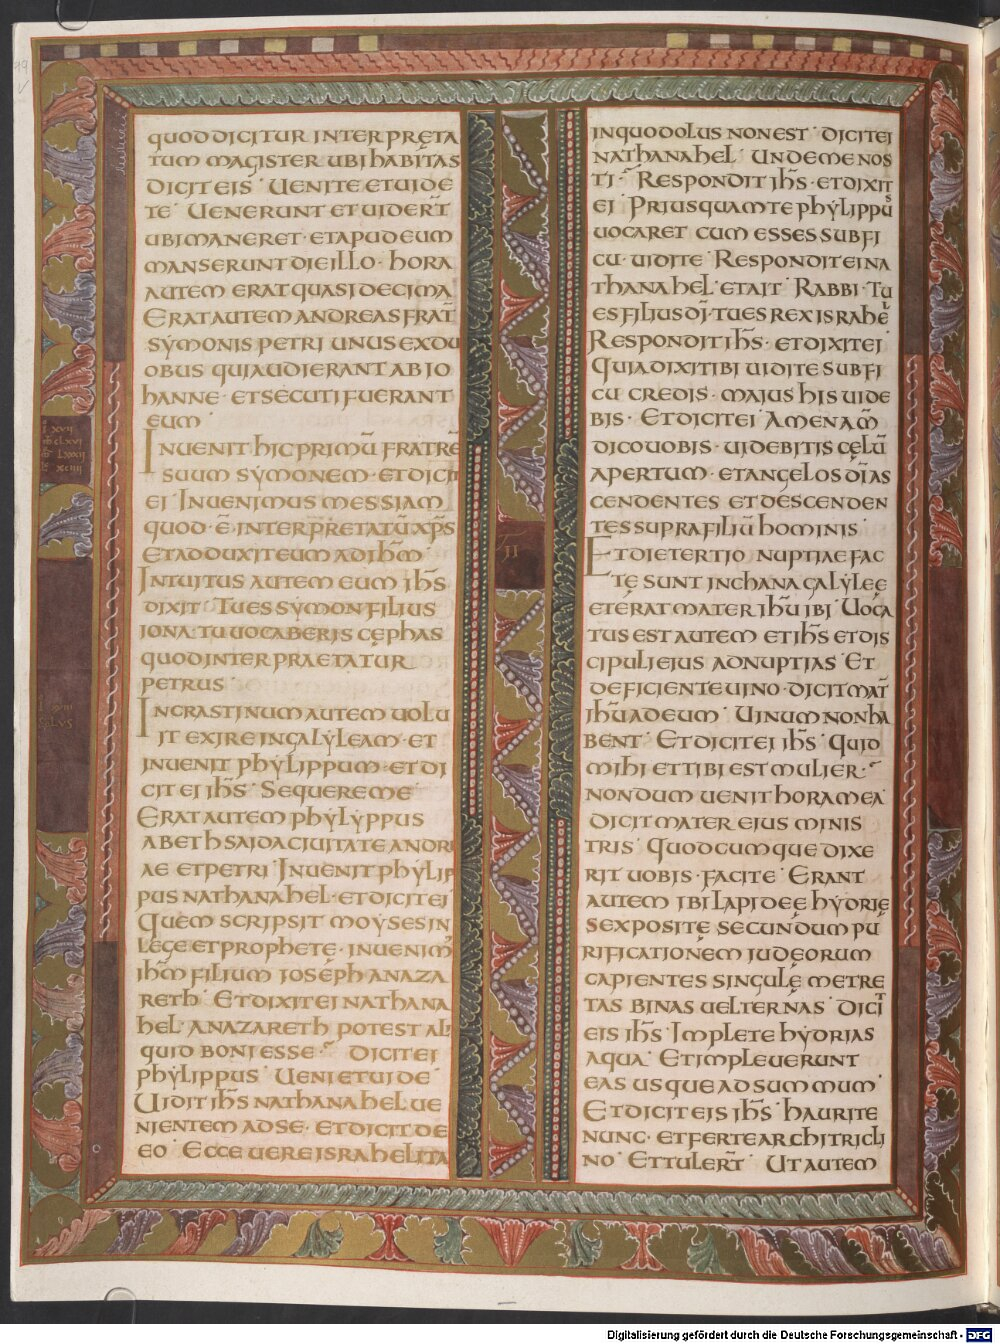 99
v
QUOD DICITUR INTERPRĘTA
TUM MAGISTER UBI HABITAS
DICIT EIS · UENITE ET UIDE
TE · UENERUNT ET UIDER̄T
UBI MANERET · ET APUD EUM
MANSERUNT DIE ILLO · HORA
AUTEM ERAT QUASI DECIMA
ERAT AUTEM ANDREAS FRAT̄
SẎMONIS PETRI UNUS EX DU
OBUS QUI AUDIERANT AB IO
HANNE · ET SECUTI FUERANT
EUM ·
INUENIT HIC PRIMŪ FRATRĒ
SUUM SẎMONEM · ET DICIT
EI · INUENIMUS MESSIAM
QUOD · Ē INTERPRETATŪ XP̄S
ET ADDUXIT EUM AD IH̄M ·
INTUITUS AUTEM EUM IH̄S
DIXIT · TU ES SẎMON FILIUS
IONA · TU UOCABERIS CĘPHAS
QUOD INTERPRAETATUR
PETRUS ·
IN CRASTINUM AUTEM UOLU
IT EXIRE IN GALẎLEAM · ET
INUENIT PHẎLIPPUM · ET DI
CIT EI IH̄S · SEQUERE ME ·
ERAT AUTEM PHẎLẎPPUS
A BETHSAIDA CIUITATE ANDRE
AE ET PETRI · INUENIT PHẎLIP
PUS NATHANAHEL · ET DICIT EI
QUEM SCRIPSIT MOẎSES IN
LEGE ET PROPHETĘ · INUENIM᷒
IH̄M FILIUM IOSEPH A NAZA
RETH · ET DIXIT EI NATHANA
HEL · A NAZARETH POTEST ALI
QUID BONI ESSE · DICIT EI
PHẎLIPPUS · UENI ET UIDE ·
UIDIT IH̄S NATHANAHEL UE
NIENTEM AD SE · ET DICIT DE
EO · ECCE UERE ISRAHELITA
XVII
LXVI
LXXXII
XCIIII
II
IN QUO DOLUS NON EST · DICIT EI
NATHANAHEL · UNDE ME NOS
TI · RESPONDIT IH̄S · ET DIXIT
EI · PRIUSQUAM TE PHẎLIPPUS
UOCARET CUM ESSES SUB FI
CU · UIDI TE · RESPONDIT EI NA
THANAHEL · ET AIT · RABBI · TU
ES FILIUS DĪ · TU ES REX ISRAHEL
RESPONDIT IH̄S · ET DIXIT EI
QUIA DIXI TIBI UIDI TE SUB FI
CU CREDIS · MAIUS HIS UIDE
BIS · ET DICIT EI · AMEN AM̄
DICO UOBIS · UIDEBITIS CĘLŪ
APERTUM · ET ANGELOS DĪ AS
CENDENTES ET DESCENDEN
TES SUPRA FILIŪ HOMINIS ·
ET DIE TERTIO NUPTIAE FAC
TĘ SUNT IN CHANA GALẎLEĘ
ET ERAT MATER IH̄U IBI · UOCA
TUS EST AUTEM ET IH̄S ET DIS
CIPULI EIUS AD NUPTIAS · ET
DEFICIENTE UINO · DICIT MAT̄
IH̄U AD EUM · UINUM NON HA
BENT · ET DICIT EI IH̄S · QUID
MIHI ET TIBI EST MULIER ·
NONDUM UENIT HORA MEA
DICIT MATER EIUS MINIS
TRIS · QUODCUMQUE DIXE
RIT UOBIS · FACITE · ERANT
AUTEM IBI LAPIDEĘ HẎDRIĘ
SEX POSITĘ SECUNDUM PU
RIFICATIONEM IUDEORUM
CAPIENTES SINGULĘ METRE
TAS BINAS UEL TERNAS · DICIT
EIS IH̄S · IMPLETE HẎDRIAS
AQUA · ET IMPLEUERUNT
EAS USQUE AD SUMMUM ·
ET DICIT EIS IH̄S · HAURITE
NUNC · ET FERTE ARCHITRICLI
NO · ET TULER̄T · UT AUTEM
Digitalisierung gefördert durch die Deutsche Forschungsgemeinschaft - DFG